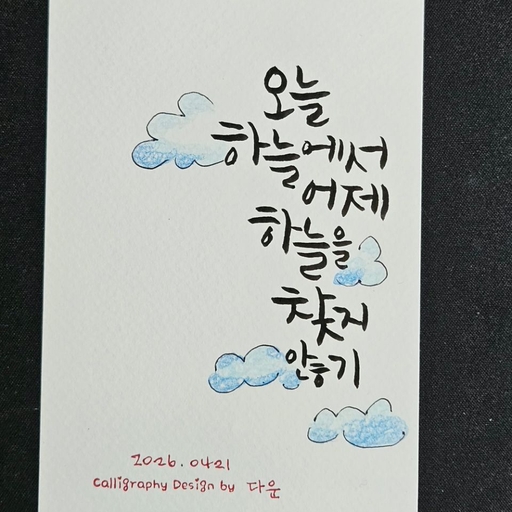 오늘
하늘에서
어제
하늘을
찾지
않기
2026.0421
Calligraphy Design by 다운